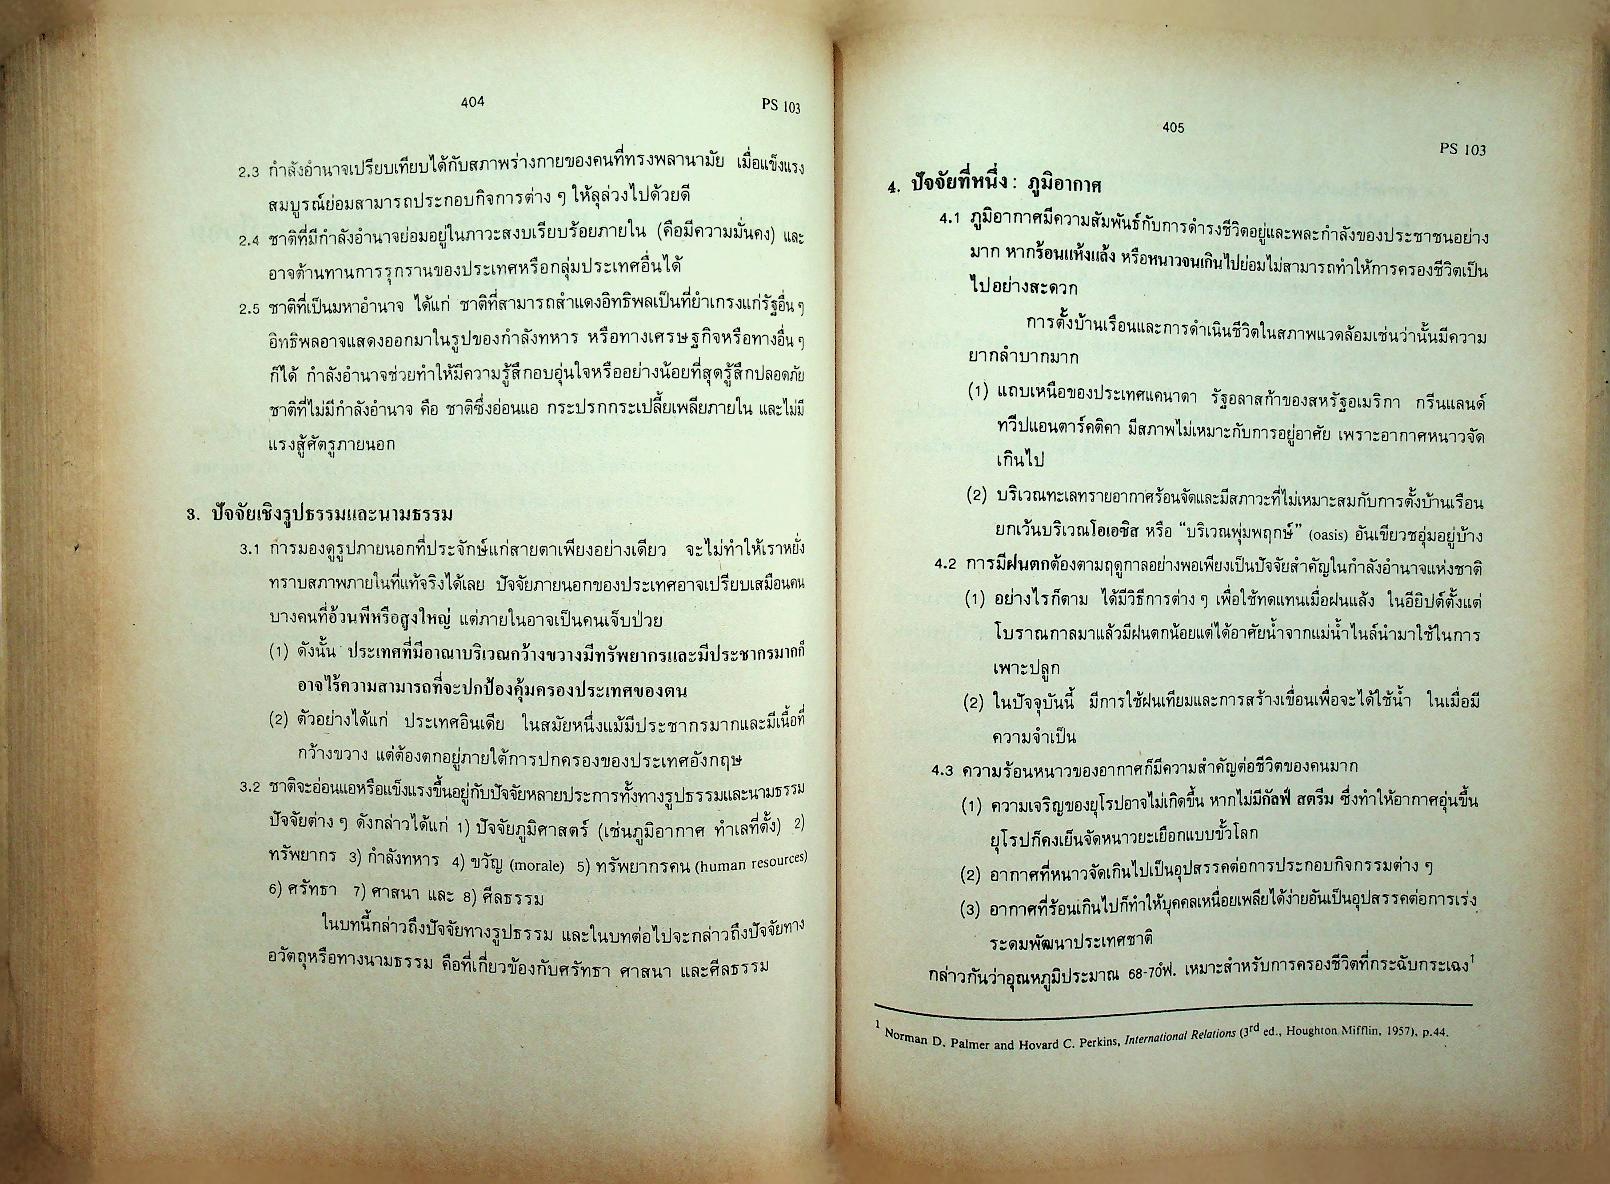 404
PS 103
2.3 กำลังอำนาจเปรียบเทียบได้กับสภาพร่างกายของคนที่ทรงพลานามัย เมื่อแข็งแรง
สมบูรณ์ย่อมสามารถประกอบกิจการต่าง ๆ ให้ลุล่วงไปด้วยดี
2.4 ชาติที่มีกำลังอำนาจย่อมอยู่ในภาวะสงบเรียบร้อยภายใน (คือมีความมั่นคง) และ
อาจต้านทานการรุกรานของประเทศหรือกลุ่มประเทศอื่นได้
2.5 ชาติที่เป็นมหาอำนาจ ได้แก่ ชาติที่สามารถสำแดงอิทธิพลเป็นที่ยำเกรงแก่รัฐอื่น ๆ
อิทธิพลอาจแสดงออกมาในรูปของกำลังทหาร หรือทางเศรษฐกิจหรือทางอื่น ๆ
ก็ได้ กำลังอำนาจช่วยทำให้มีความรู้สึกอบอุ่นใจหรืออย่างน้อยที่สุดรู้สึกปลอดภัย
ชาติที่ไม่มีกำลังอำนาจ คือ ชาติซึ่งอ่อนแอ กระปรกกระเปลี้ยเพลียภายใน และไม่มี
แรงสู้ศัตรูภายนอก
3. ปัจจัยเชิงรูปธรรมและนามธรรม
3.1 การมองดูรูปภายนอกที่ประจักษ์แก่สายตาเพียงอย่างเดียว จะไม่ทำให้เราหยั่ง
ทราบสภาพภายในที่แท้จริงได้เลย ปัจจัยภายนอกของประเทศอาจเปรียบเสมือนคน
บางคนที่อ้วนพีหรือสูงใหญ่ แต่ภายในอาจเป็นคนเจ็บป่วย
(1) ดังนั้น ประเทศที่มีอาณาบริเวณกว้างขวางมีทรัพยากรและมีประชากรมากก็
อาจไร้ความสามารถที่จะปกป้องคุ้มครองประเทศของตน
(2) ตัวอย่างได้แก่ ประเทศอินเดีย ในสมัยหนึ่งแม้มีประชากรมากและมีเนื้อที่
กว้างขวาง แต่ต้องตกอยู่ภายใต้การปกครองของประเทศอังกฤษ
3.2 ชาติจะอ่อนแอหรือแข็งแรงขึ้นอยู่กับปัจจัยหลายประการทั้งทางรูปธรรมและนามธรรม
ปัจจัยต่าง ๆ ดังกล่าวได้แก่ 1) ปัจจัยภูมิศาสตร์ (เช่นภูมิอากาศ ทำเลที่ตั้ง) 2)
ทรัพยากร 3) กำลังทหาร 4) ขวัญ (morale) 5) ทรัพยากรคน (human resources)
6) ศรัทธา 7) ศาสนา และ 8) ศีลธรรม
ในบทนี้กล่าวถึงปัจจัยทางรูปธรรม และในบทต่อไปจะกล่าวถึงปัจจัยทาง
อวัตถุหรือทางนามธรรม คือที่เกี่ยวข้องกับศรัทธา ศาสนา และศีลธรรม
405
PS 103
4. ปัจจัยที่หนึ่ง : ภูมิอากาศ
4.1 ภูมิอากาศมีความสัมพันธ์กับการดำรงชีวิตอยู่และพละกำลังของประชาชนอย่าง
มาก หากร้อนแห้งแล้ง หรือหนาวจนเกินไปย่อมไม่สามารถทำให้การครองชีวิตเป็น
ไปอย่างสะดวก
การตั้งบ้านเรือนและการดำเนินชีวิตในสภาพแวดล้อมเช่นว่านั้นมีความ
ยากลำบากมาก
(1) แถบเหนือของประเทศแคนาดา รัฐอลาสก้าของสหรัฐอเมริกา กรีนแลนด์
ทวีปแอนตาร์คติคา มีสภาพไม่เหมาะกับการอยู่อาศัย เพราะอากาศหนาวจัด
เกินไป
(2) บริเวณทะเลทรายอากาศร้อนจัดและมีสภาวะที่ไม่เหมาะสมกับการตั้งบ้านเรือน
ยกเว้นบริเวณโอเอซิส หรือ “บริเวณพุ่มพฤกษ์” (oasis) อันเขียวชอุ่มอยู่บ้าง
4.2 การมีฝนตกต้องตามฤดูกาลอย่างพอเพียงเป็นปัจจัยสำคัญในกำลังอำนาจแห่งชาติ
(1) อย่างไรก็ตาม ได้มีวิธีการต่าง ๆ เพื่อใช้ทดแทนเมื่อฝนแล้ง ในอียิปต์ตั้งแต่
โบราณกาลมาแล้วมีฝนตกน้อยแต่ได้อาศัยน้ำจากแม่น้ำไนล์นำมาใช้ในการ
เพาะปลูก
(2) ในปัจจุบันนี้ มีการใช้ฝนเทียมและการสร้างเขื่อนเพื่อจะได้ใช้น้ำ ในเมื่อมี
ความจำเป็น
4.3 ความร้อนหนาวของอากาศก็มีความสำคัญต่อชีวิตของคนมาก
(1) ความเจริญของยุโรปอาจไม่เกิดขึ้น หากไม่มีกัลฟ์ สตรีม ซึ่งทำให้อากาศอุ่นขึ้น
ยุโรปก็คงเย็นจัดหนาวยะเยือกแบบขั้วโลก
(2) อากาศที่หนาวจัดเกินไปเป็นอุปสรรคต่อการประกอบกิจกรรมต่าง ๆ
(3) อากาศที่ร้อนเกินไปก็ทำให้บุคคลเหนื่อยเพลียได้ง่ายอันเป็นอุปสรรคต่อการเร่ง
ระดมพัฒนาประเทศชาติ
กล่าวกันว่าอุณหภูมิประมาณ 68-70°ฟ. เหมาะสำหรับการครองชีวิตที่กระฉับกระเฉง¹
¹ Norman D. Palmer and Hovard C. Perkins, International Relations (3rd ed., Houghton Mifflin, 1957), p.44.